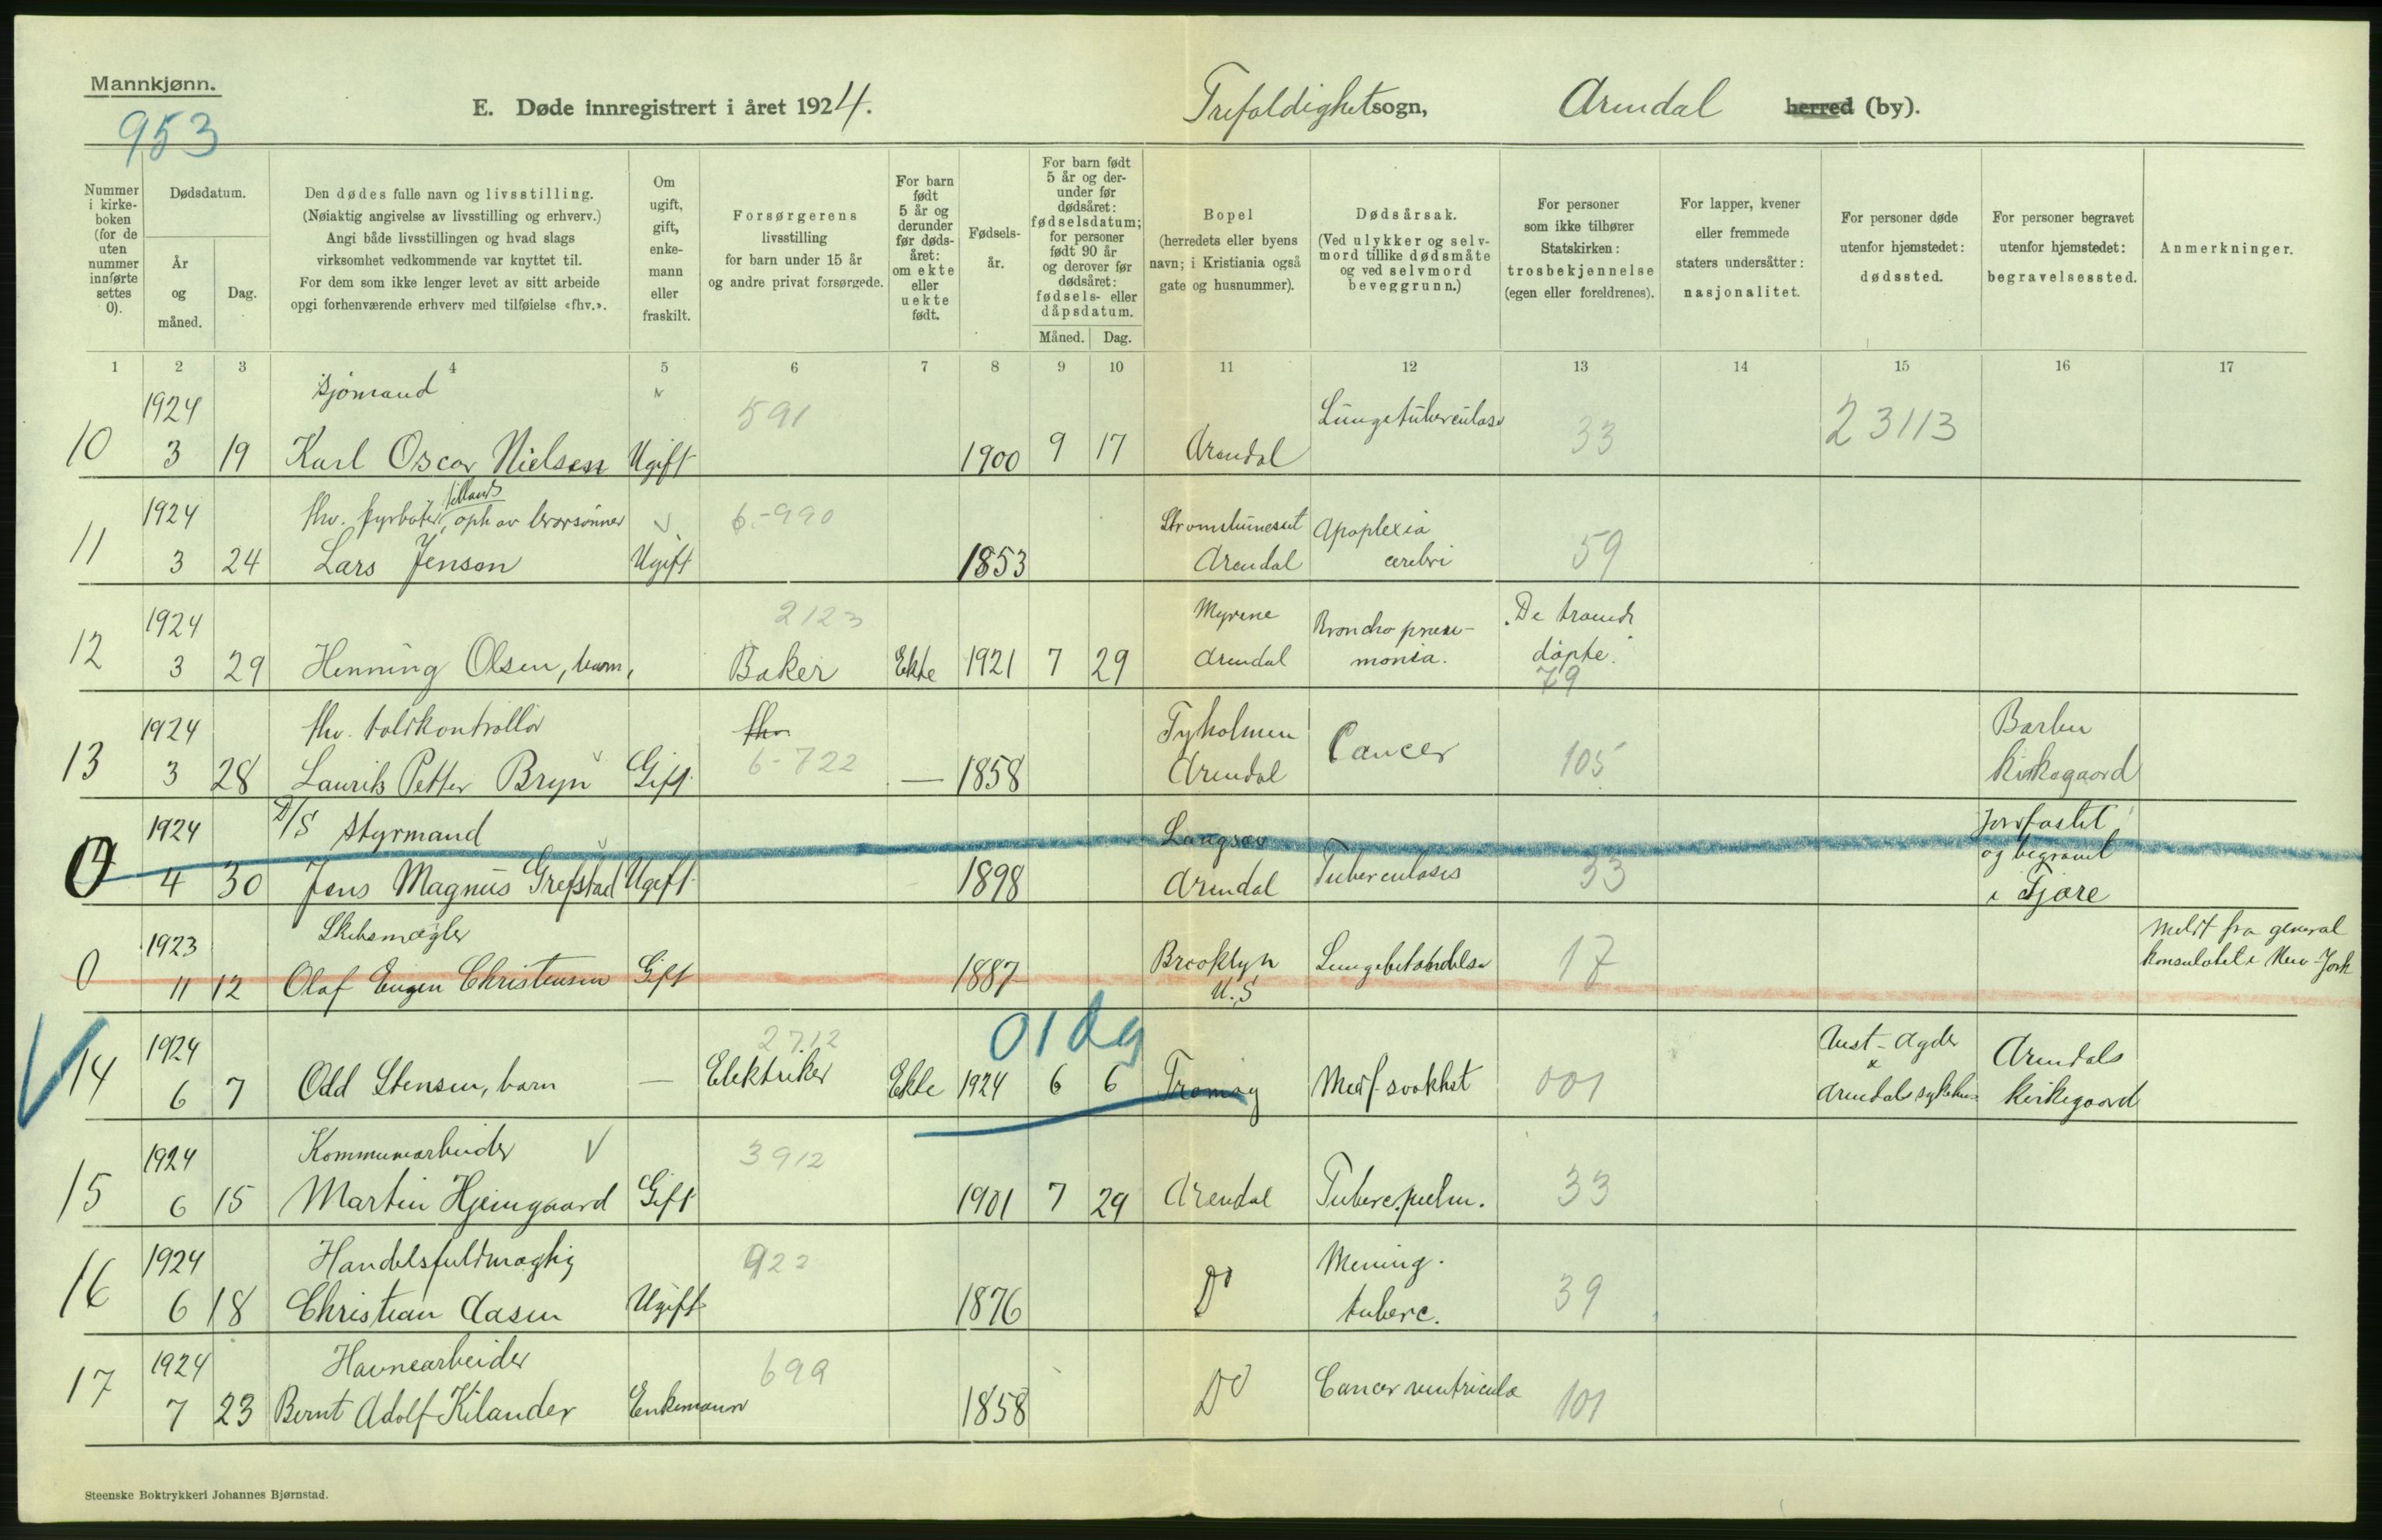 Mannkjønn.
953
E. Døde innregistrert i året 1924.
Trefoldighet sogn,
Arendal herred (by).
Nummer i kirke-boken (for de uten nummer innførte settes 0).
Dødsdatum.
År og måned.
Dag.
Den dødes fulle navn og livsstilling.
(Nøiaktig angivelse av livsstilling og erhverv.)
Angi både livsstillingen og hvad slags
virksomhet vedkommende var knyttet til.
For dem som ikke lenger levet av sitt arbeide
opgi forhenværende erhverv med tilføielse «fhv.».
Om ugift, gift, enke-mann eller fraskilt.
Forsørgerens
livsstilling
for barn under 15 år
og andre privat forsørgede.
For barn født 5 år og derunder før døds-året: om ekte eller uekte født.
Fødsels-år.
For barn født 5 år og der-under før dødsåret: fødselsdatum; for personer født 90 år og derover før dødsåret: fødsels- eller dåpsdatum.
Måned. Dag.
Bopel
(herredets eller byens
navn; i Kristiania også
gate og husnummer).
Dødsårsak.
(Ved ulykker og selv-
mord tillike dødsmåte
og ved selvmord
beveggrunn.)
For personer
som ikke tilhører
Statskirken:
trosbekjennelse
(egen eller foreldrenes).
For lapper, kvener
eller fremmede
staters undersåtter:
nasjonalitet.
For personer døde
utenfor hjemstedet:
dødssted.
For personer begravet
utenfor hjemstedet:
begravelsessted.
Anmerkninger.
1 2 3 4 5 6 7 8 9 10 11 12 13 14 15 16 17
1924 Sjømand 591 Lungetuberculose 33 23113
10 3 19 Karl Oscar Nielsen Ugift 1900 9 17 Arendal
1924 fhv. 6-990 Apoplexia 59
11 3 24 Lars Jenson Ugift 1853 Arendal cerebri
1924 2123 Myrene Broncho pneu-
12 3 29 Henning Olsen, barn, Baker Ekte 1921 7 29 Arendal monia. døpte.
79
1924 fhv. toldkontrollør fhv. Tyholmen Cancer 105 Barbu
13 3 28 Laurits Petter Bryn Gift 6-722 — 1858 Arendal Kirkegaard
1924 D/S Styrmand Langsæ Jordfæstet
og begravet
0 4 30 Jens Magnus Grefstad Ugift 1898 Arendal Tuberculosis 33 i Fjære
1923 Skibsmægler Meldt fra general
0 11 12 Olaf Eugen Christensen Gift 1887 Brooklyn U.S Lungebetændelse 17 konsulatet i New-York
1924 2712 01dg Aust-Agder Arendals
14 6 7 Odd Stensen, barn — Elektriker Ekte 1924 6 6 Tromøy Medf svakhet 001 Arendals sykehus Kirkegaard
1924 Kommunearbeider 3912
15 6 15 Martin Hjemgaard Gift 1901 7 29 Arendal Tuberc. pulm. 33
1924 Handelsfuldmægtig 922 Mening.
16 6 18 Christian Aasen Ugift 1876 Do tuberc. 39
1924 Havnearbeider 699
17 7 23 Bernt Adolf Kilander Enkemann 1858 Do Cancer ventriculi 101
Steenske Boktrykkeri Johannes Bjørnstad.